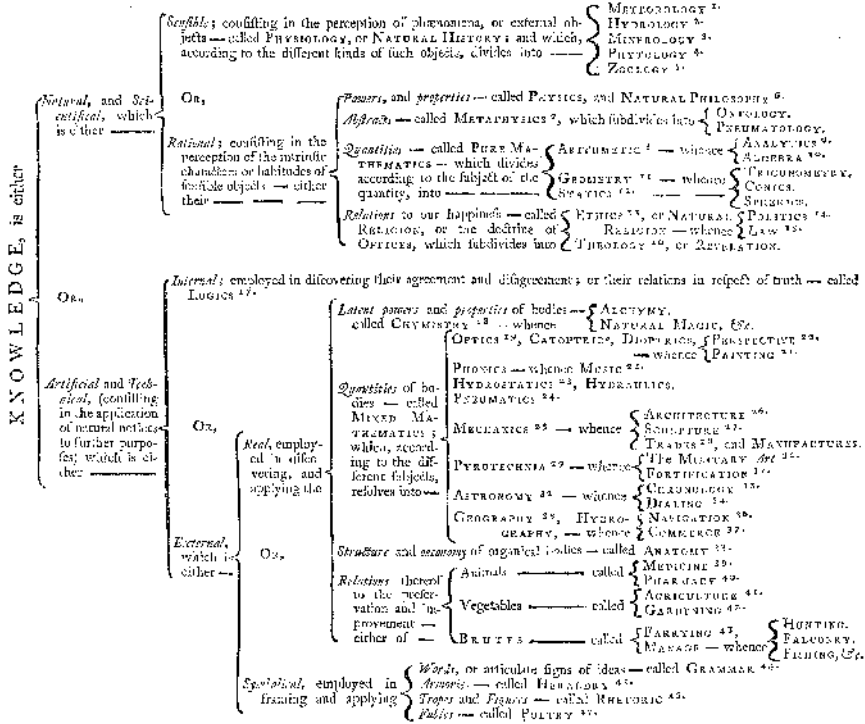 KNOWLEDGE, is either
Natural, and Sci-
entifical, which
is either
Senſible; conſiſting in the perception of phænomena, or external ob-
jects — called PHYSIOLOGY, or NATURAL HISTORY; and which,
according to the different kinds of ſuch objects, divides into
METEOROLOGY 1.
HYDROLOGY 2.
MINEROLOGY 3.
PHYTOLOGY 4.
ZOOLOGY 5.
OR,
Rational; conſiſting in the
perception of the intrinſic
characters or habitudes of
ſenſible objects — either
their
Powers, and properties — called PHYSICS, and NATURAL PHILOSOPHY 6.
Abſtracts — called METAPHYSICS 7, which ſubdivides into
ONTOLOGY.
PNEUMATOLOGY.
Quantities — called PURE MA-
THEMATICS — which divides
according to the ſubject of the
quantity, into
ARITHMETIC 8 — whence
ANALYTICS 9.
ALGEBRA 10.
GEOMETRY 11 — whence
TRIGONOMETRY.
CONICS.
SPHERICS.
STATICS 12.
Relations to our happineſs — called
RELIGION, or the doctrine of
OFFICES, which ſubdivides into
ETHICS 13, or NATURAL
RELIGION — whence
POLITICS 14.
LAW 15.
THEOLOGY 16, or REVELATION.
OR,
Artificial and Tech-
nical, (conſiſting
in the application
of natural notices
to further purpo-
ſes) which is ei-
ther
Internal; employed in diſcovering their agreement and diſagreement; or their relations in reſpect of truth — called
LOGICS 17.
OR,
External,
which is
either
Real, employ-
ed in diſco-
vering, and
applying the
Latent powers and properties of bodies —
called CHYMISTRY 18 — whence
ALCHYMY.
NATURAL MAGIC, &c.
Quantities of bo-
dies — called
MIXED MA-
THEMATICS;
which, accord-
ing to the dif-
ferent ſubjects,
reſolves into
OPTICS 19, CATOPTRICS, DIOPTRICS,
— whence
PERSPECTIVE 20.
PAINTING 21.
PHONICS — whence MUSIC 22.
HYDROSTATICS 23, HYDRAULICS.
PNEUMATICS 24.
MECHANICS 25 — whence
ARCHITECTURE 26.
SCULPTURE 27.
TRADES 28, and MANUFACTURES.
PYROTECHNIA 29 — whence
The MILITARY Art 30.
FORTIFICATION 31.
ASTRONOMY 32 — whence
CHRONOLOGY 33.
DIALING 34.
GEOGRAPHY 35, HYDRO-
GRAPHY, — whence
NAVIGATION 36.
COMMERCE 37.
Structure and oeconomy of organical bodies — called ANATOMY 38.
Relations thereof
to the preſer-
vation and im-
provement —
either of
Animals — called
MEDICINE 39.
PHARMACY 40.
Vegetables — called
AGRICULTURE 41.
GARDENING 42.
BRUTES — called
FARRYING 43,
MANAGE — whence
HUNTING.
FALCONRY.
FISHING, &c.
OR,
Symbolical, employed in
framing and applying
Words, or articulate ſigns of ideas — called GRAMMAR 44.
Armories — called HERALDRY 45.
Tropes and Figures — called RHETORIC 46.
Fables — called POETRY 47.